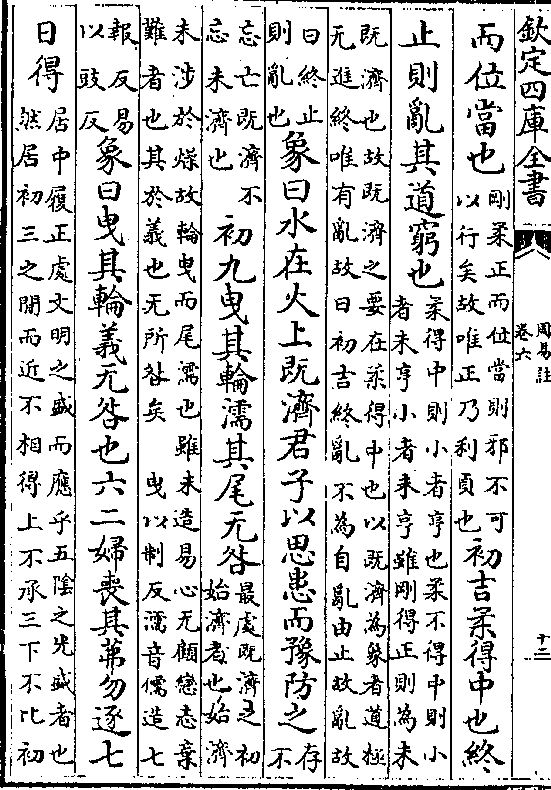 欽定四庫全書
周易註
卷六
十二
而位當也剛柔正而位當則邪不可以行矣故唯正乃利貞也初吉柔得中也終
止則亂其道窮也柔得中則小者亨也柔不得中則小者未亨小者未亨雖剛得正則為未
既濟也故既濟之要在柔得中也以既濟為象者道極无進終唯有亂故曰初吉終亂不為自亂由止故亂故
曰終止則亂也象曰水在火上既濟君子以思患而豫防之存不
忘亡既濟不忘未濟也初九曳其輪濡其尾无咎最處既濟之初始濟者也始濟
未涉於燥故輪曳而尾濡也雖未造易心无顧戀志棄難者也其於義也无所咎矣 曳以制反濡音儒造七
報反易以豉反象曰曳其輪義无咎也六二婦喪其茀勿逐七
日得居中履正處文明之盛而應乎五陰之光盛者也然居初三之閒而近不相得上不承三下不比初